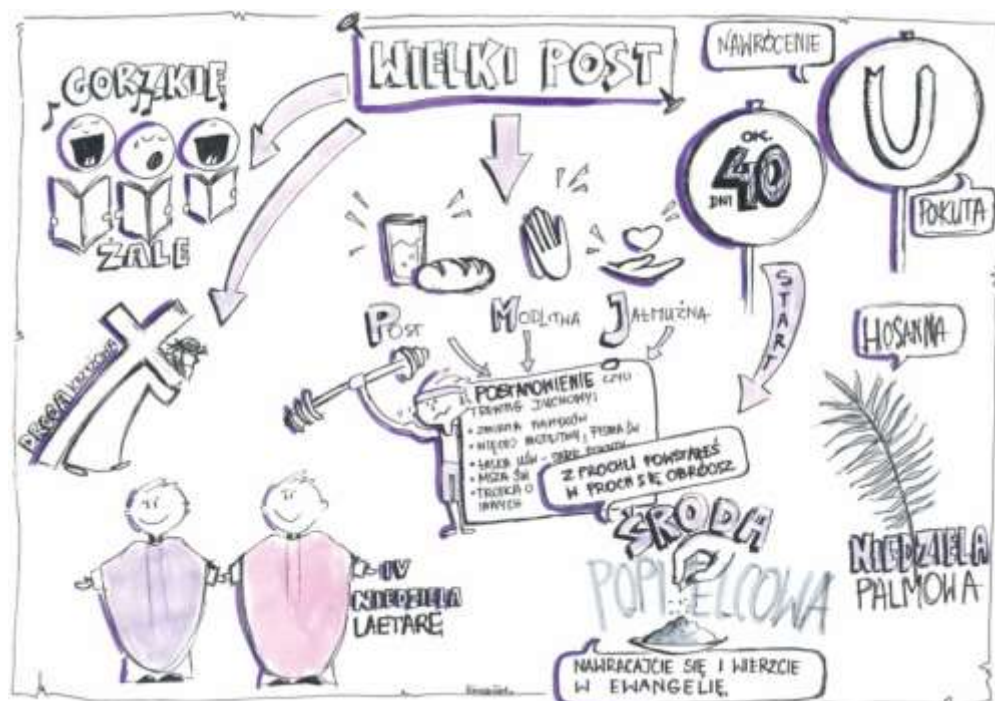 WIELKI POST
GORZKIE
ŻALE
DROGA KRZYŻOWA
NAWRÓCENIE
U
POKUTA
OK.
40
DNI
START
POST
MODLITWA
JAŁMUŻNA
POSTANOWIENIE CZYLI
TRENING DUCHOWY:
• ZMIANA NAWYKÓW
• WIĘCEJ MODLITWY, PISMA ŚW
• ŁASKA UŚW -
• MSZA ŚW
• TROSKA O
INNYCH
Z PROCHU POWSTAŁEŚ
W PROCH SIĘ OBRÓCISZ
ŚRODA
POPIELCOWA
NAWRACAJCIE SIĘ I WIERZCIE
W EWANGELIĘ
HOSANNA
NIEDZIELA
PALMOWA
IV
NIEDZIELA
LAETARE